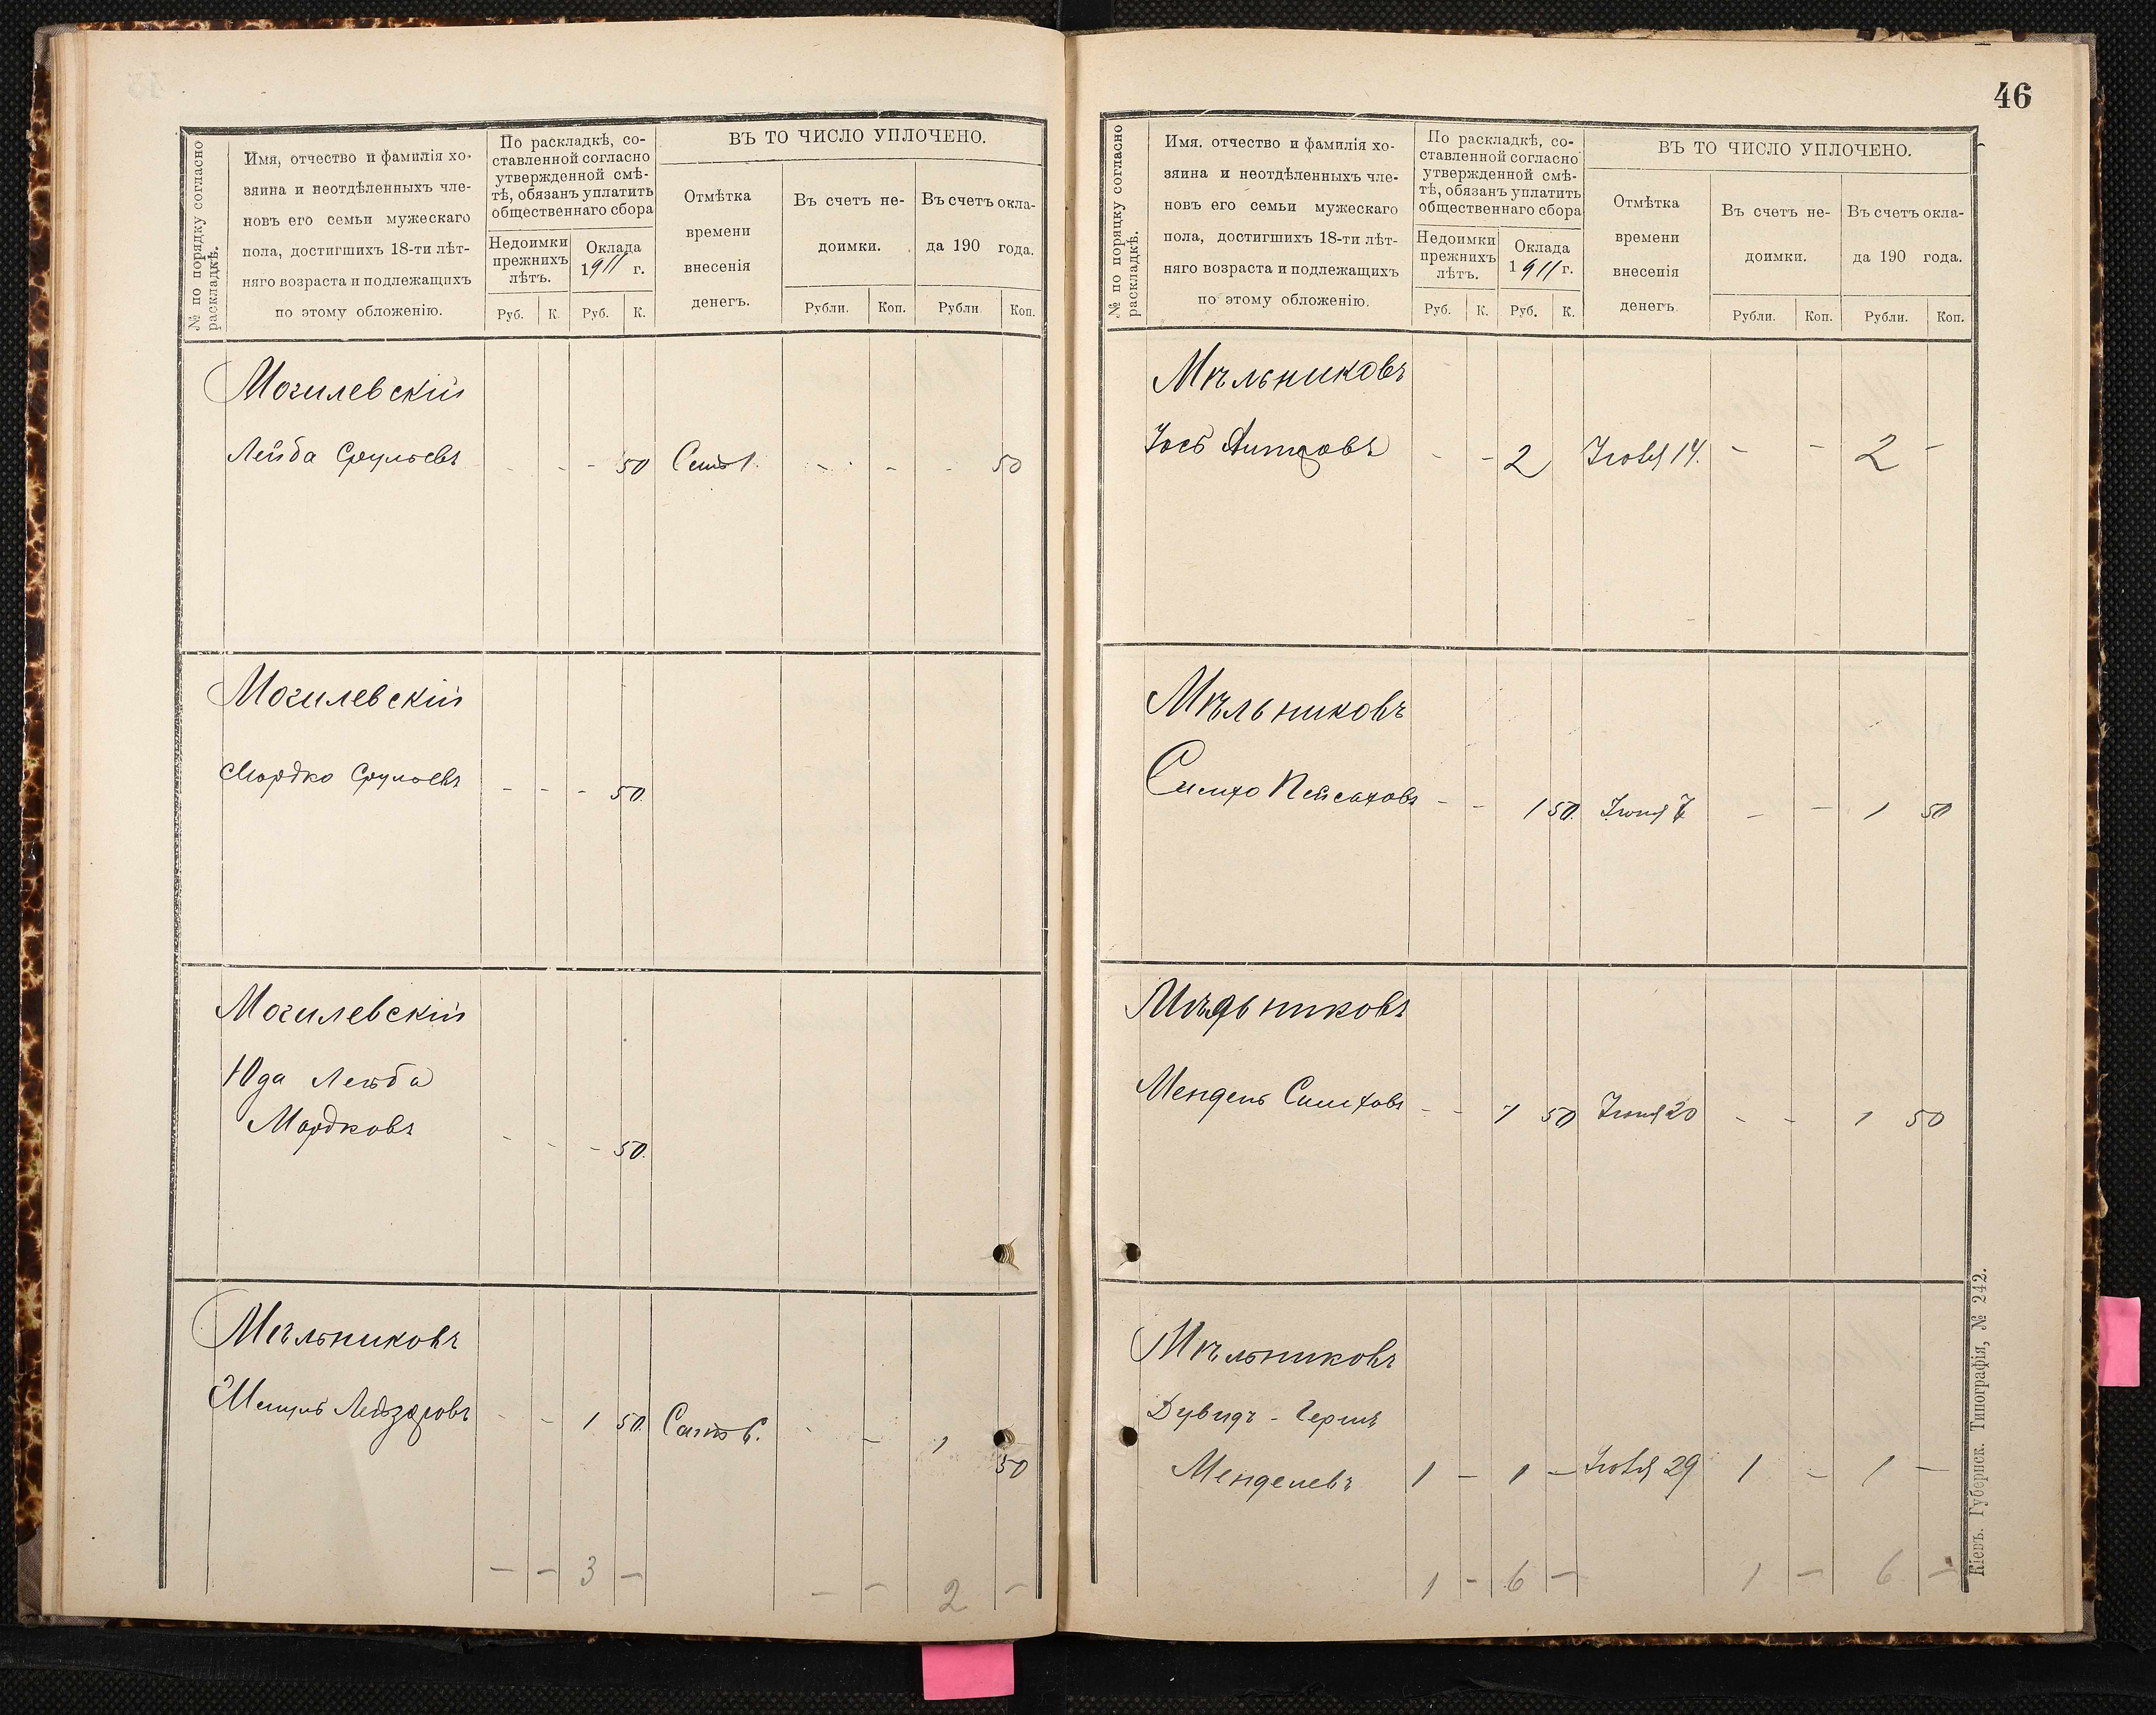 № по порядку согласно раскладкѣ.
Имя, отчество и фамилія хо-
зяина и неотдѣленныхъ чле-
новъ его семьи мужескаго
пола, достигшихъ 18-ти лѣт-
няго возраста и подлежащихъ
по этому обложенію.
По раскладкѣ, со-
ставленной согласно
утвержденной смѣ-
тѣ, обязанъ уплатить
общественнаго сбора
Недоимки
прежнихъ
лѣтъ.
Оклада
1911 г.
Руб. К. Руб. К.
ВЪ ТО ЧИСЛО УПЛОЧЕНО.
Отмѣтка
времени
внесенія
денегъ.
Въ счетъ не-
доимки.
Въ счетъ окла-
да 190 года.
Рубли. Коп. Рубли Коп.
Могилевскій
Лейба Срульевъ - - - 50 Сент 1. - - - 50
Могилевскій
Мордко Срульевъ - - - 50.
Могилевскій
Юда Лейба
Мордковъ - - - 50.
Мѣльниковъ
Шмуль Лейзеровъ - - 1 50. - - 1 50
- - 3 - - - 2 -
46
№ по порядку согласно раскладкѣ.
Имя. отчество и фамилія хо-
зяина и неотдѣленныхъ чле-
новъ его семьи мужескаго
пола, достигшихъ 18-ти лѣт-
няго возраста и подлежащихъ
по этому обложенію.
По раскладкѣ, со-
ставленной согласно
утвержденной смѣ-
тѣ, обязанъ уплатить
общественнаго сбора
Недоимки
прежнихъ
лѣтъ.
Оклада
1911 г.
Руб. К. Руб. К.
ВЪ ТО ЧИСЛО УПЛОЧЕНО.
Отмѣтка
времени
внесенія
денегъ.
Въ счетъ не-
доимки.
Въ счетъ окла-
да 190 года.
Рубли. Коп. Рубли. Коп.
Мѣльниковъ
Іось - - 2 Іюля 14. - - 2 -
Мѣльниковъ
Симхо Пейсаховъ - - 1 50. Іюня 7 - - 1 50
Мѣльниковъ
Мендель Симховъ - - 1 50 Іюня 20 - - 1 50
Мѣльниковъ
Дувидъ-Гершъ
Менделевъ 1 - 1 - Іюля 29 1 - 1 -
1 - 6 - 1 - 6 -
Кіевъ. Губернск. Типографія, № 242.